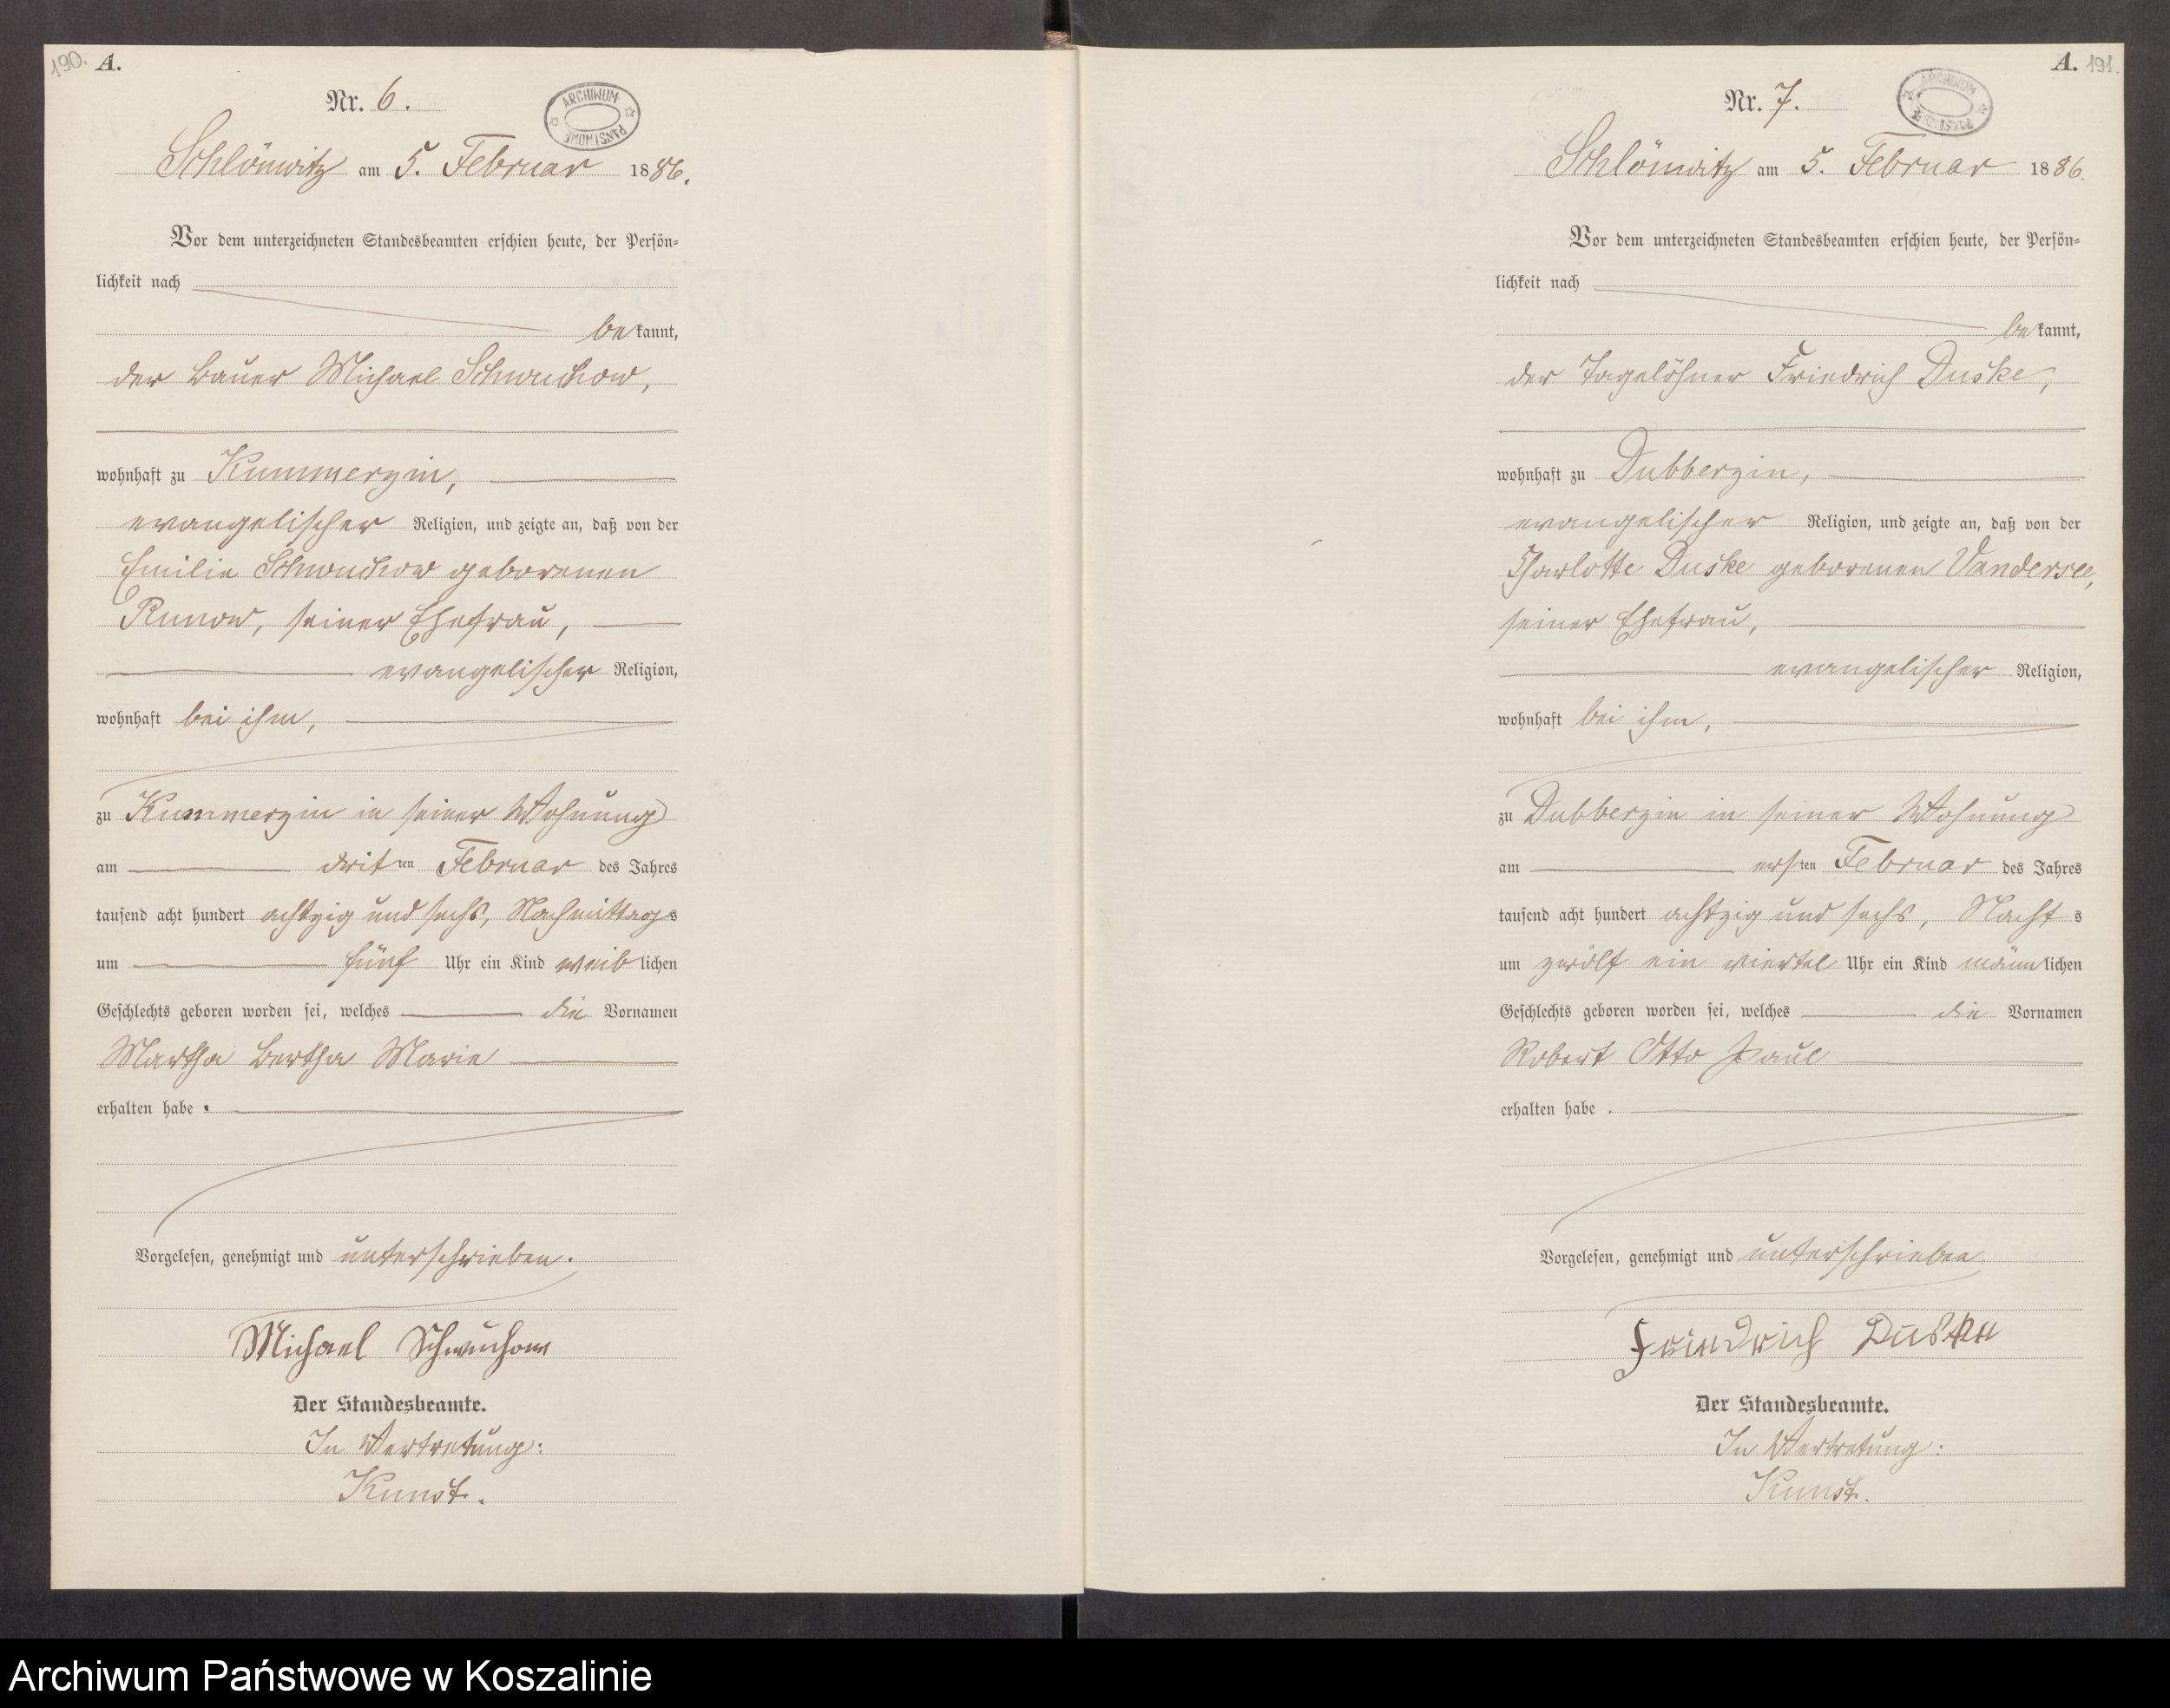 190. A.
Nr. 6.
ARCHIWUM PAŃSTWOWE
Schlönwitz am 5. Februar 1886.
Vor dem unterzeichneten Standesbeamten erschien heute, der Persön-
lichkeit nach
bekannt,
der Bauer Michael Schwuchow,
wohnhaft zu Kummerzin,
evangelischer Religion, und zeigte an, daß von der
Emilie Schwuchow geborenen
Runow, seiner Ehefrau,
evangelischer Religion,
wohnhaft bei ihm,
zu Kummerzin in seiner Wohnung
am dritten Februar des Jahres
tausend acht hundert achtzig und sechs, Nachmittags
um fünf Uhr ein Kind weiblichen
Geschlechts geboren worden sei, welches die Vornamen
Martha Bertha Marie
erhalten habe.
Vorgelesen, genehmigt und unterschrieben.
Michael Schwuchow
Der Standesbeamte.
In Vertretung:
Kunst.
A. 191.
Nr. 7.
ARCHIWUM PAŃSTWOWE
Schlönwitz am 5. Februar 1886.
Vor dem unterzeichneten Standesbeamten erschien heute, der Persön-
lichkeit nach
bekannt,
der Tagelöhner Friedrich Duske,
wohnhaft zu Dubberzin,
evangelischer Religion, und zeigte an, daß von der
Charlotte Duske geborenen Vandersee,
seiner Ehefrau,
evangelischer Religion,
wohnhaft bei ihm,
zu Dubberzin in seiner Wohnung
am ersten Februar des Jahres
tausend acht hundert achtzig und sechs, Nachts
um zwölf ein viertel Uhr ein Kind männlichen
Geschlechts geboren worden sei, welches die Vornamen
Robert Otto Paul
erhalten habe.
Vorgelesen, genehmigt und unterschrieben.
Friedrich Duske
Der Standesbeamte.
In Vertretung:
Kunst.
Archiwum Państwowe w Koszalinie